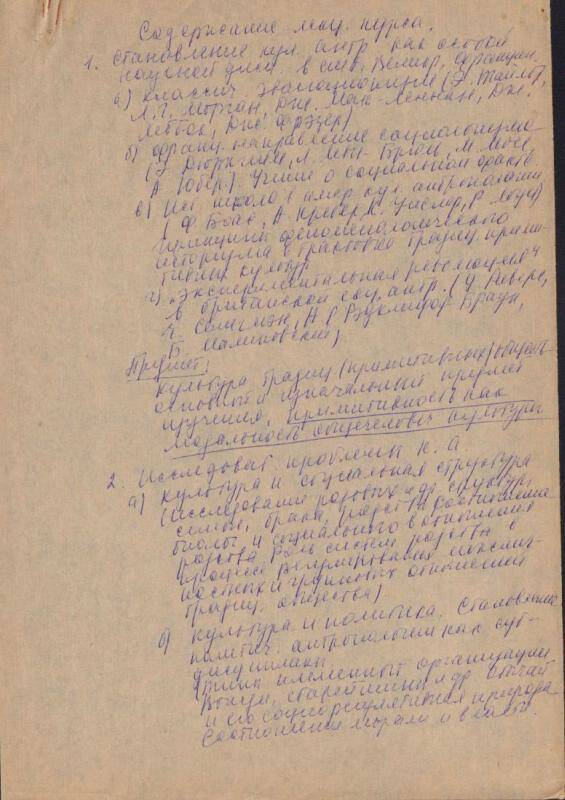 Содержание лекц. курса.
1. Становление кул. антр. как особой
научной дисц. в США, Великобр., Франции.
а) классич. эволюционизм (Э. Тайлор,
Л.Г. Морган, Дж. Мак-Леннан, Дж.
Леббок, Дж. Фрэзер)
б) франц. направление социологизма
(Э. Дюркгейм, Л. Леви-Брюль, М. Мосс,
А. Юбер). Учение о социальном факте.
в) Ист. школа в амер. кул. антропологии
(Ф. Боас, А. Кребер, К. Уислер, Р. Лоуи)
принципы феноменологического
историзма в трактовке традиц. прими-
тивных культур
г) „Экспериментальная революция"
в британской соц. антр. (У. Риверс,
Ч. Селигмэн, А.Р. Рэдклифф-Браун,
Б. Малиновский)
Предмет:
культура традиц. (примитивных) обществ-
основной и изначальный предмет
изучения, примитивность как
модальность общечеловеч. культуры
2. Исследоват. проблемы к. а
а) Культура и социальная структура
(исследование родовых и др. структур,
семьи, брака, родства, соотношение
биолог. и социального в отношениях
родства. Роль систем родства в
процессе регулирования межлич-
ностных и групповых отношений
традиц. общества)
б) Культура и политика. Становление
политич. антропологии как суб-
дисциплины.
Типы племенной организации
Вожди, старейшины и др. Обычай
и его соционормативная природа
Соотношение морали и власти.